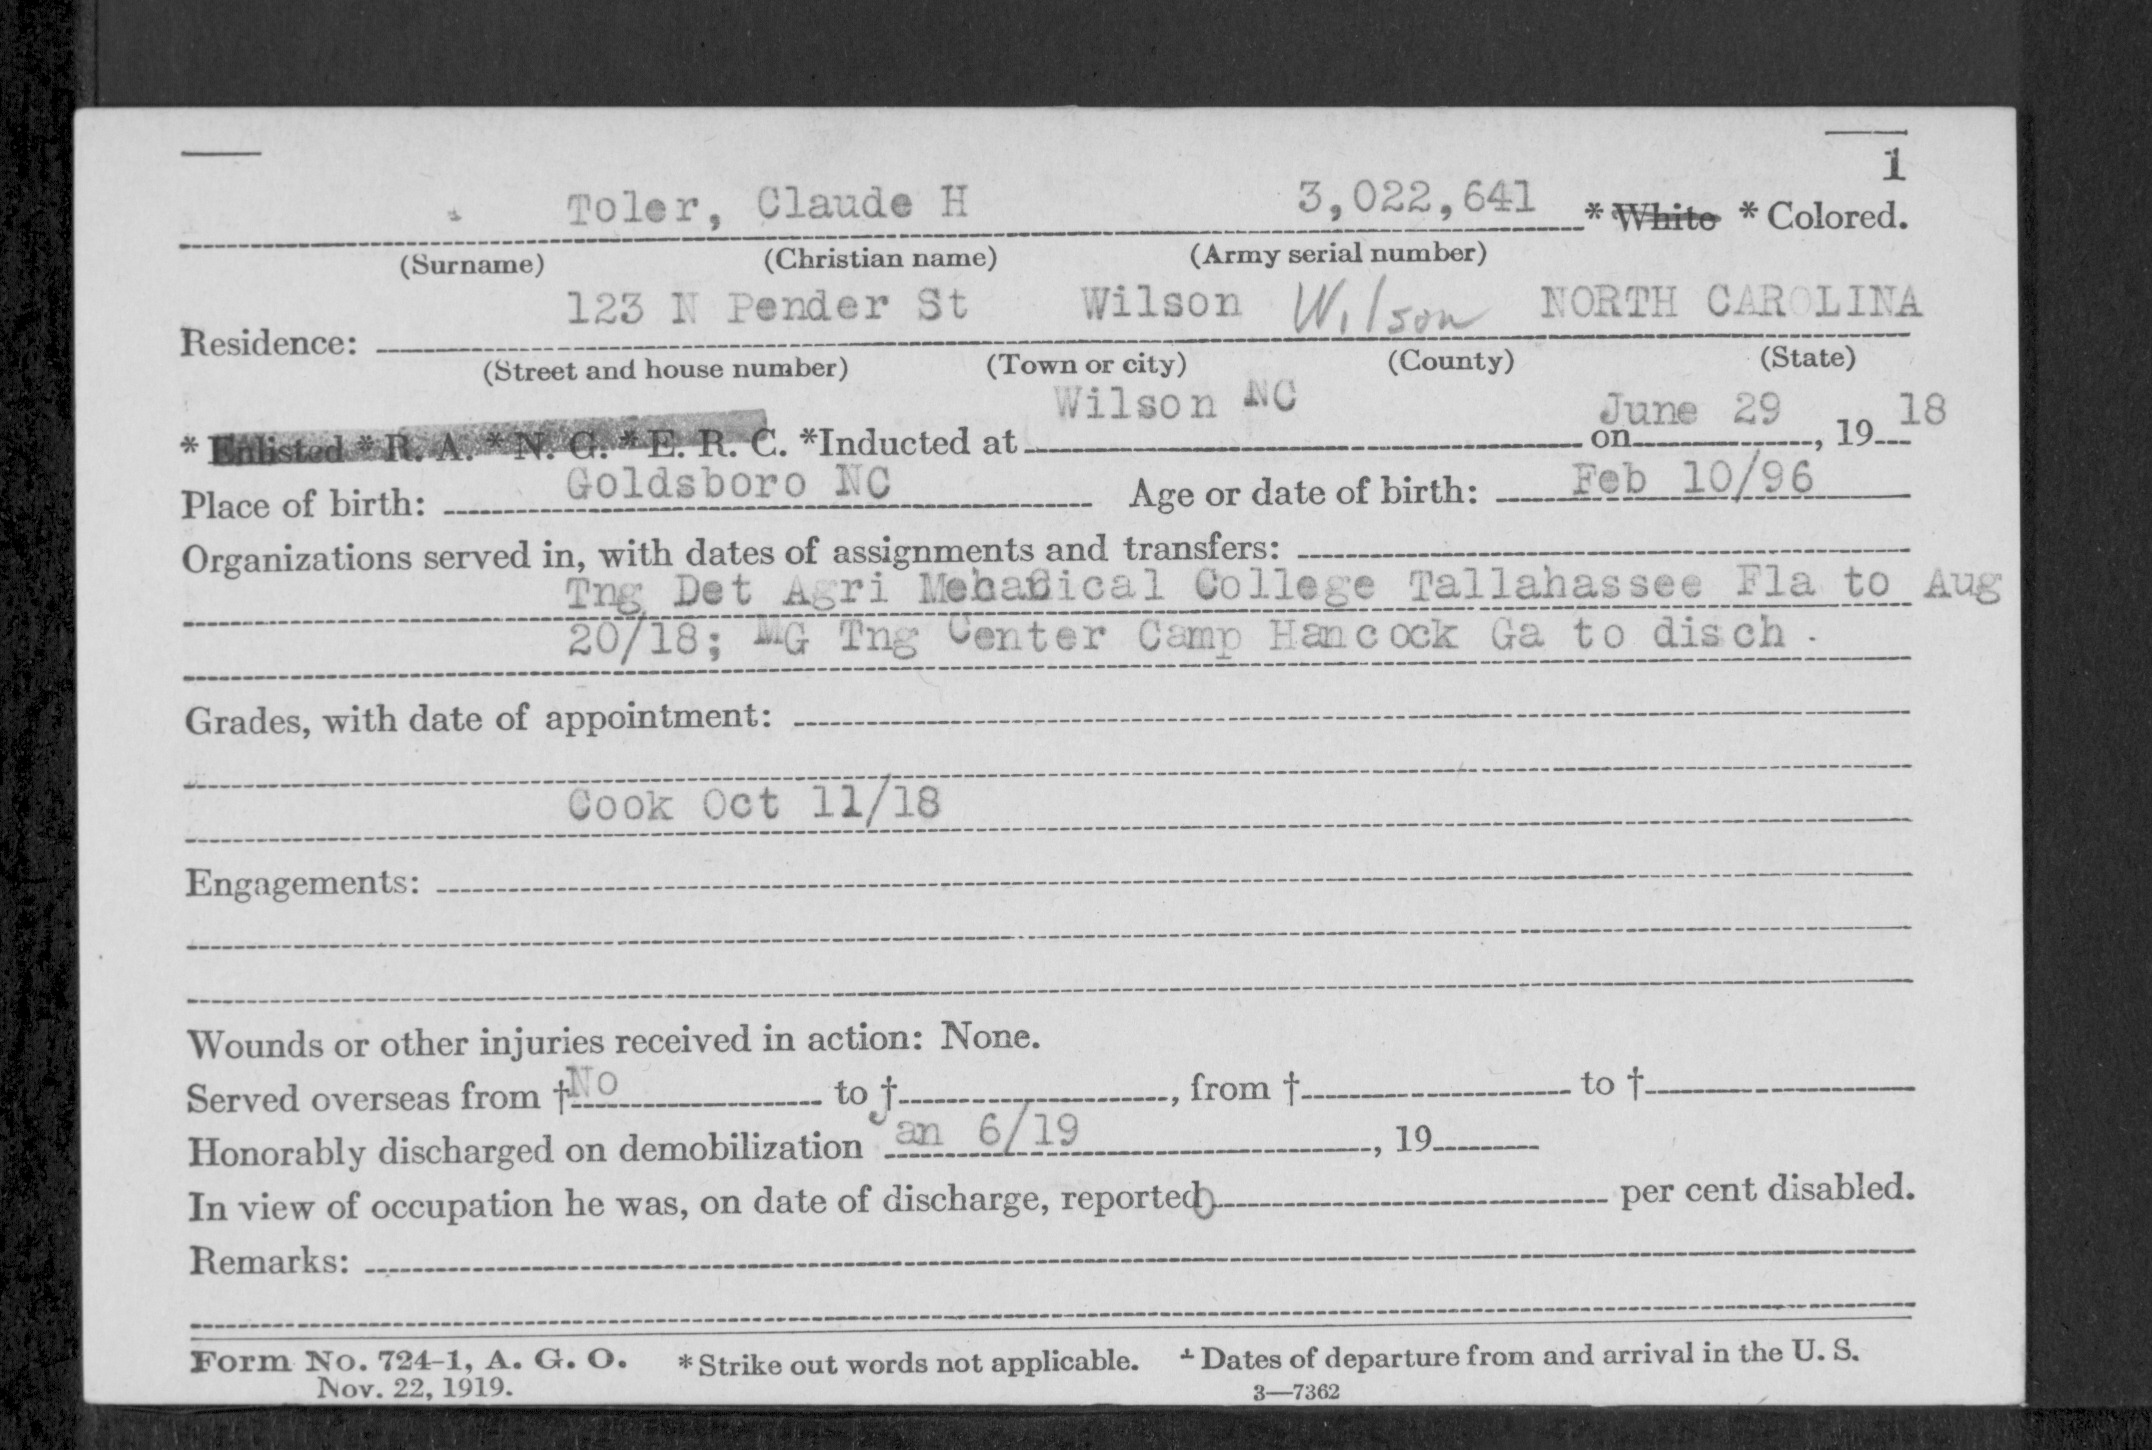 1
Toler, Claude H 3,022,641 * White * Colored.
(Surname) (Christian name) (Army serial number)
123 N Pender St Wilson Wilson NORTH CAROLINA
Residence:
(Street and house number) (Town or city) (County) (State)
Wilson NC June 29 18
* Enlisted * R. A. * N. G. * E. R. C. *Inducted at on , 19
Goldsboro NC Feb 10/96
Place of birth: Age or date of birth:
Organizations served in, with dates of assignments and transfers:
Tng Det Agri Mechanical College Tallahassee Fla to Aug
20/18; MG Tng Center Camp Hancock Ga to disch.
Grades, with date of appointment:
Cook Oct 11/18
Engagements:
Wounds or other injuries received in action: None.
Served overseas from † No to † , from † to †
Honorably discharged on demobilization Jan 6/19 , 19
In view of occupation he was, on date of discharge, reported 0 per cent disabled.
Remarks:
Form No. 724-1, A. G. O. * Strike out words not applicable. † Dates of departure from and arrival in the U. S.
Nov. 22, 1919. 3—7362